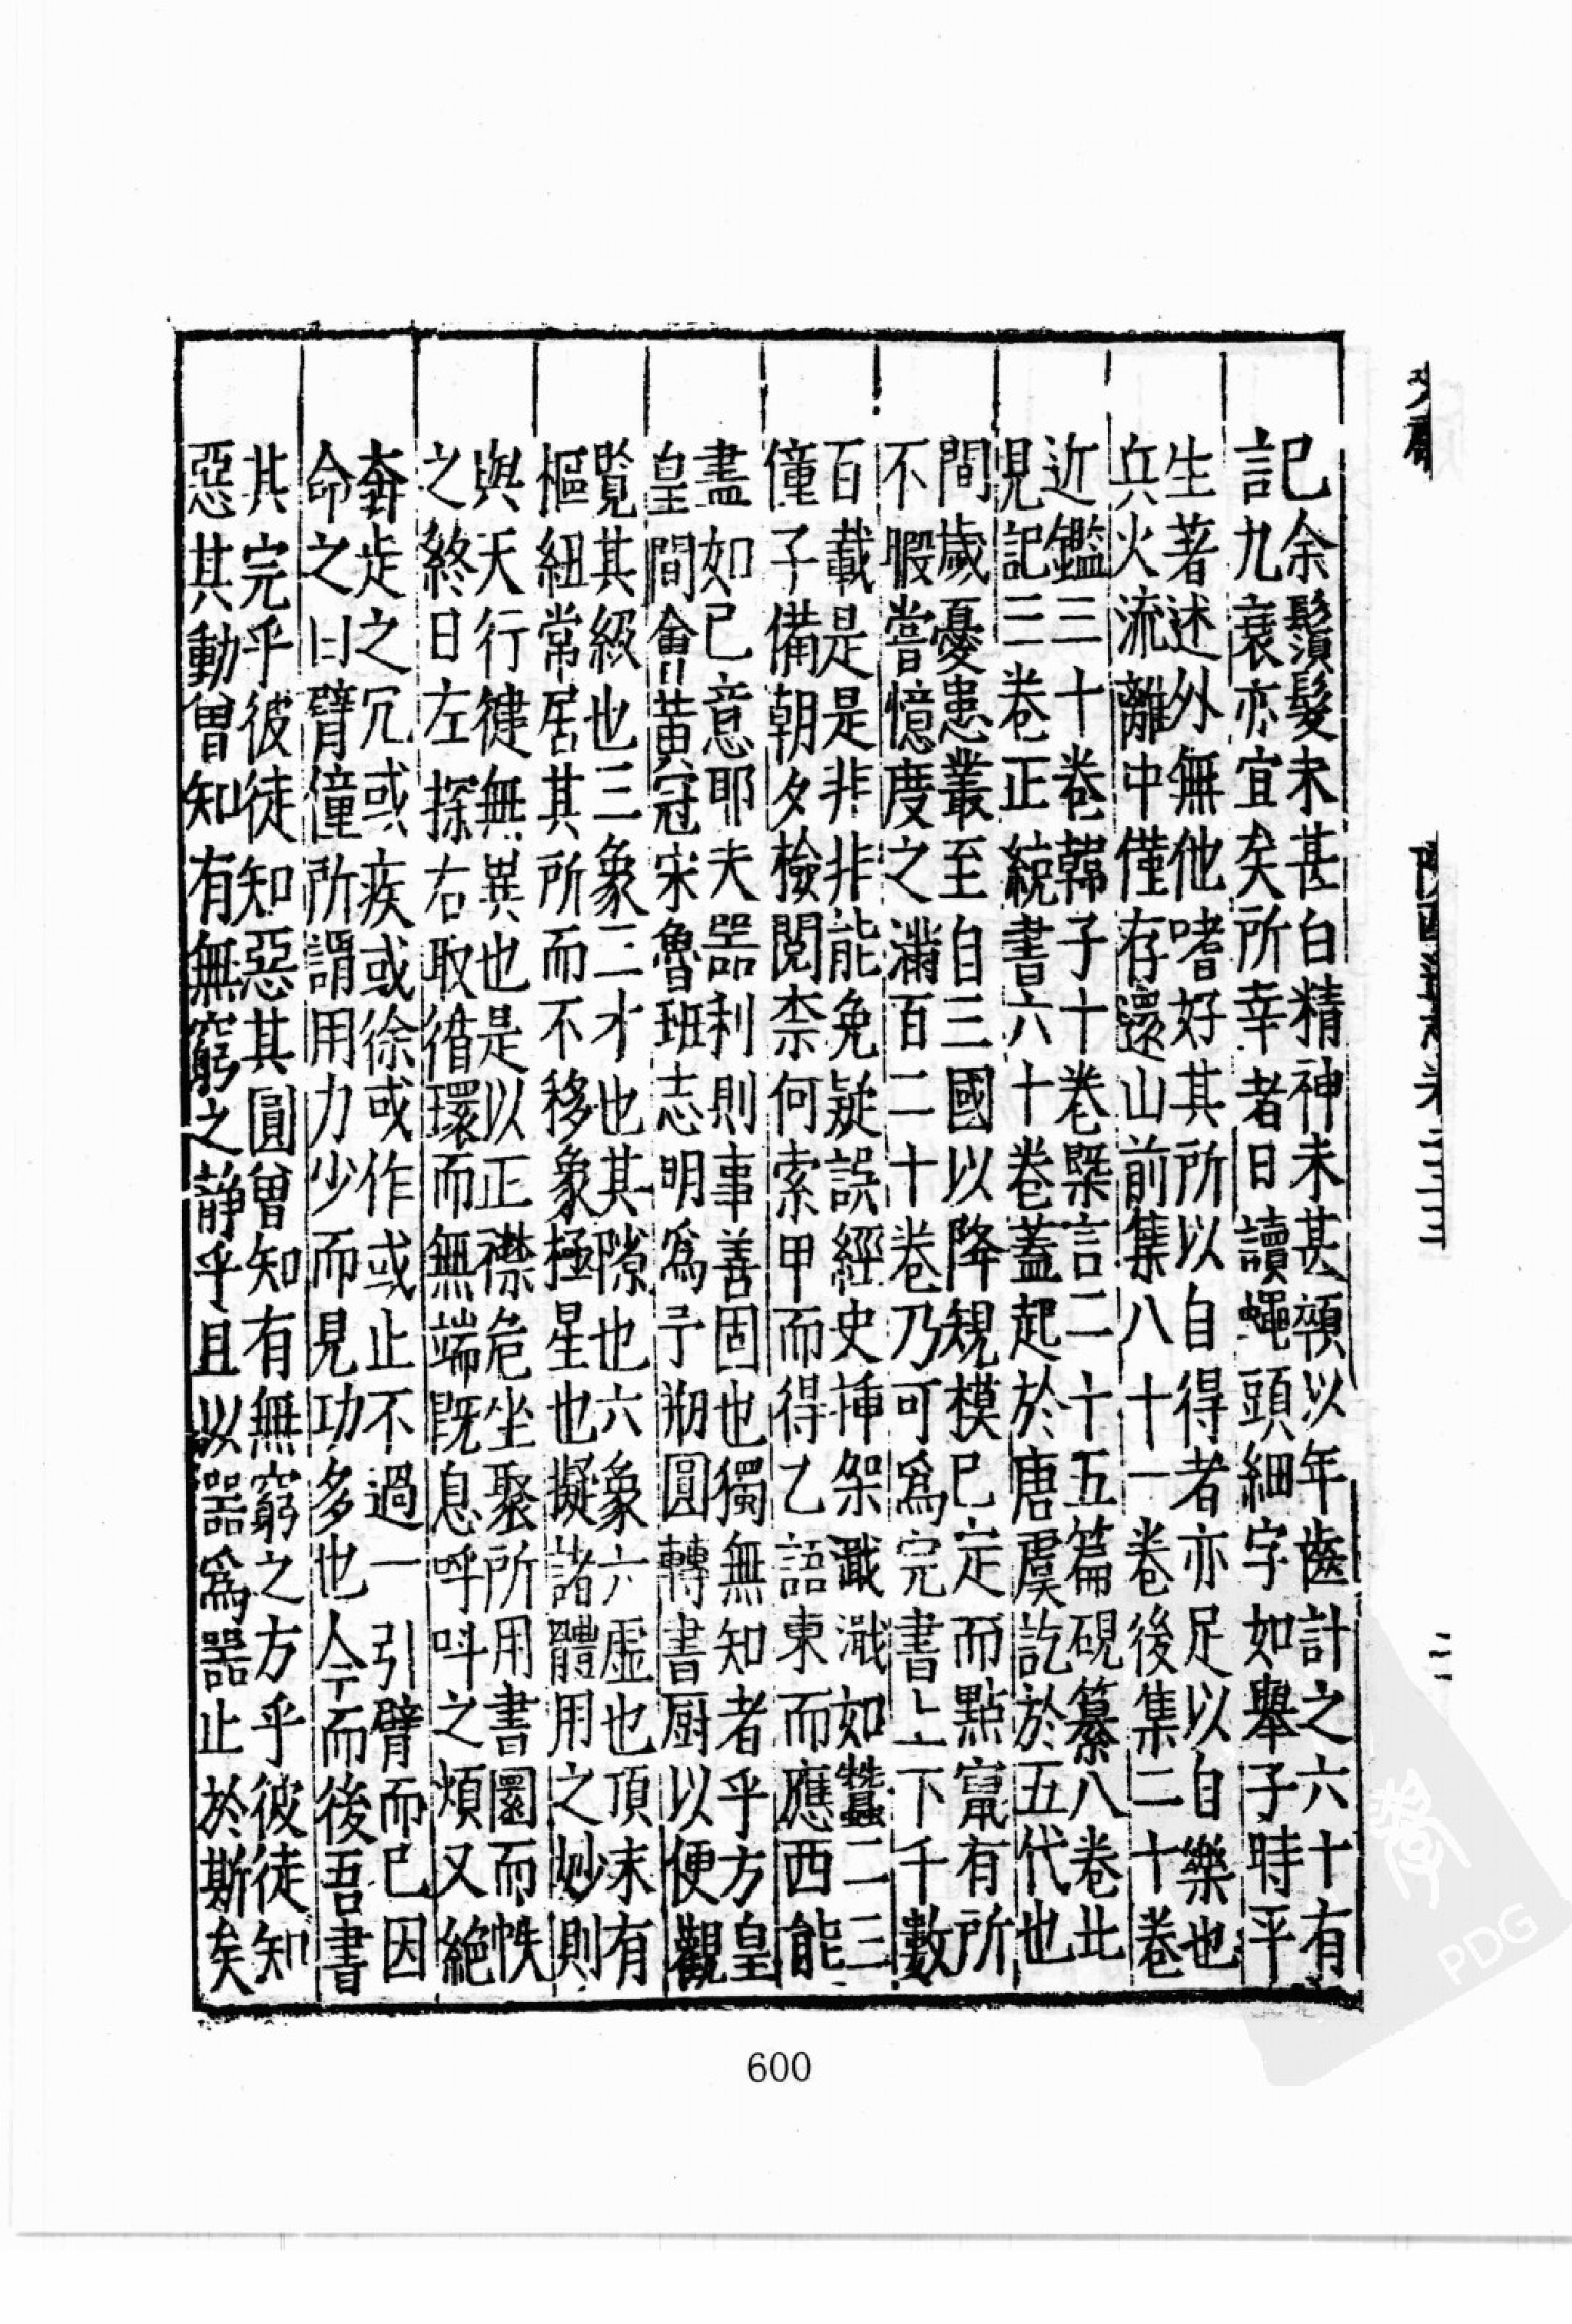 已余鬚髮未甚白精神未甚頓以年齒計之六十有
記九衰亦宜矣所幸者日讀蠅頭細字如舉子時平
生著述外無他嗜好其所以自得者亦足以自樂也
兵火流離中僅存還山前集八十一卷後集二十卷
近鑑三十卷韓子十卷槩言二十五篇硯纂八卷北
見記三卷正統書六十卷蓋起於唐虞訖於五代也
間歲憂患叢至自三國以降規模已定而點竄有所
不暇嘗憶度之滿百二十卷乃可爲完書上下千數
百載是是非非能免疑誤經史揷架濈濈如蠶二三
僮子備朝夕檢閱柰何索甲而得乙語東而應西能
盡如已意耶夫器利則事善固也獨無知者乎方皇
皇間會黃冠宋魯班志明爲予刱圓轉書厨以便觀
覧其級也三象三才也其隙也六象六虛也頂末有
樞紐常居其所而不移象極星也擬諸體用之妙則
與天行徤無異也是以正襟危坐聚所用書圜而帙
之終日左探右取循環而無端旣息呼呌之煩又絶
奔走之冗或疾或徐或作或止不過一引臂而已因
命之曰臂僮所謂用力少而見功多也今而後吾書
其完乎彼徒知惡其圓曾知有無窮之方乎彼徒知
惡其動曾知有無窮之静乎且以器爲器止於斯矣
二
600
PDG